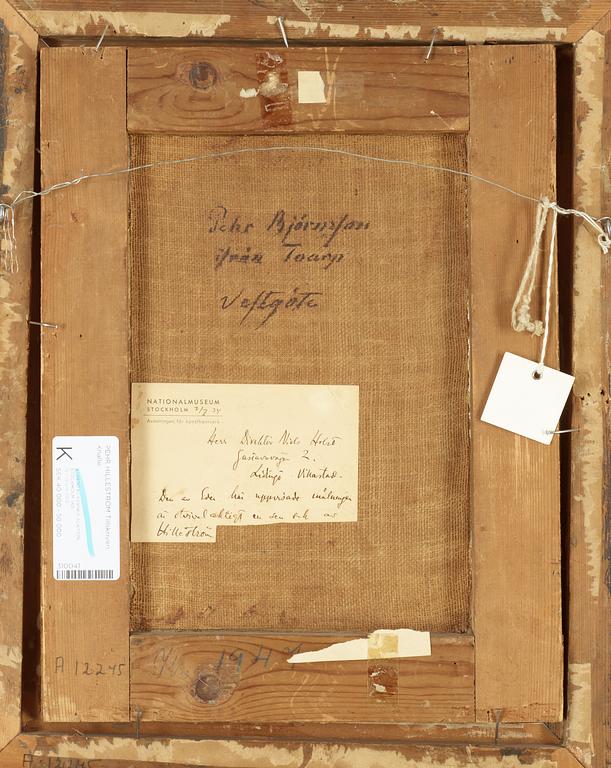 Pehr Björnsson
ifrån Toarp
Vestgöte
NATIONALMUSEUM
STOCKHOLM 7/7 34
Avdelningen för konsthantverk
Herr Direktör Nils Holst
2.
Lidingö Villastad.
Den av Eder här uppvisade målningen
är otvivelaktigt en den
Hilleström
PEHR HILLESTRÖM Tillskriven
Knalle
K
SEK 40 000 - 50 000
310041
1947
A 12245
A 12245